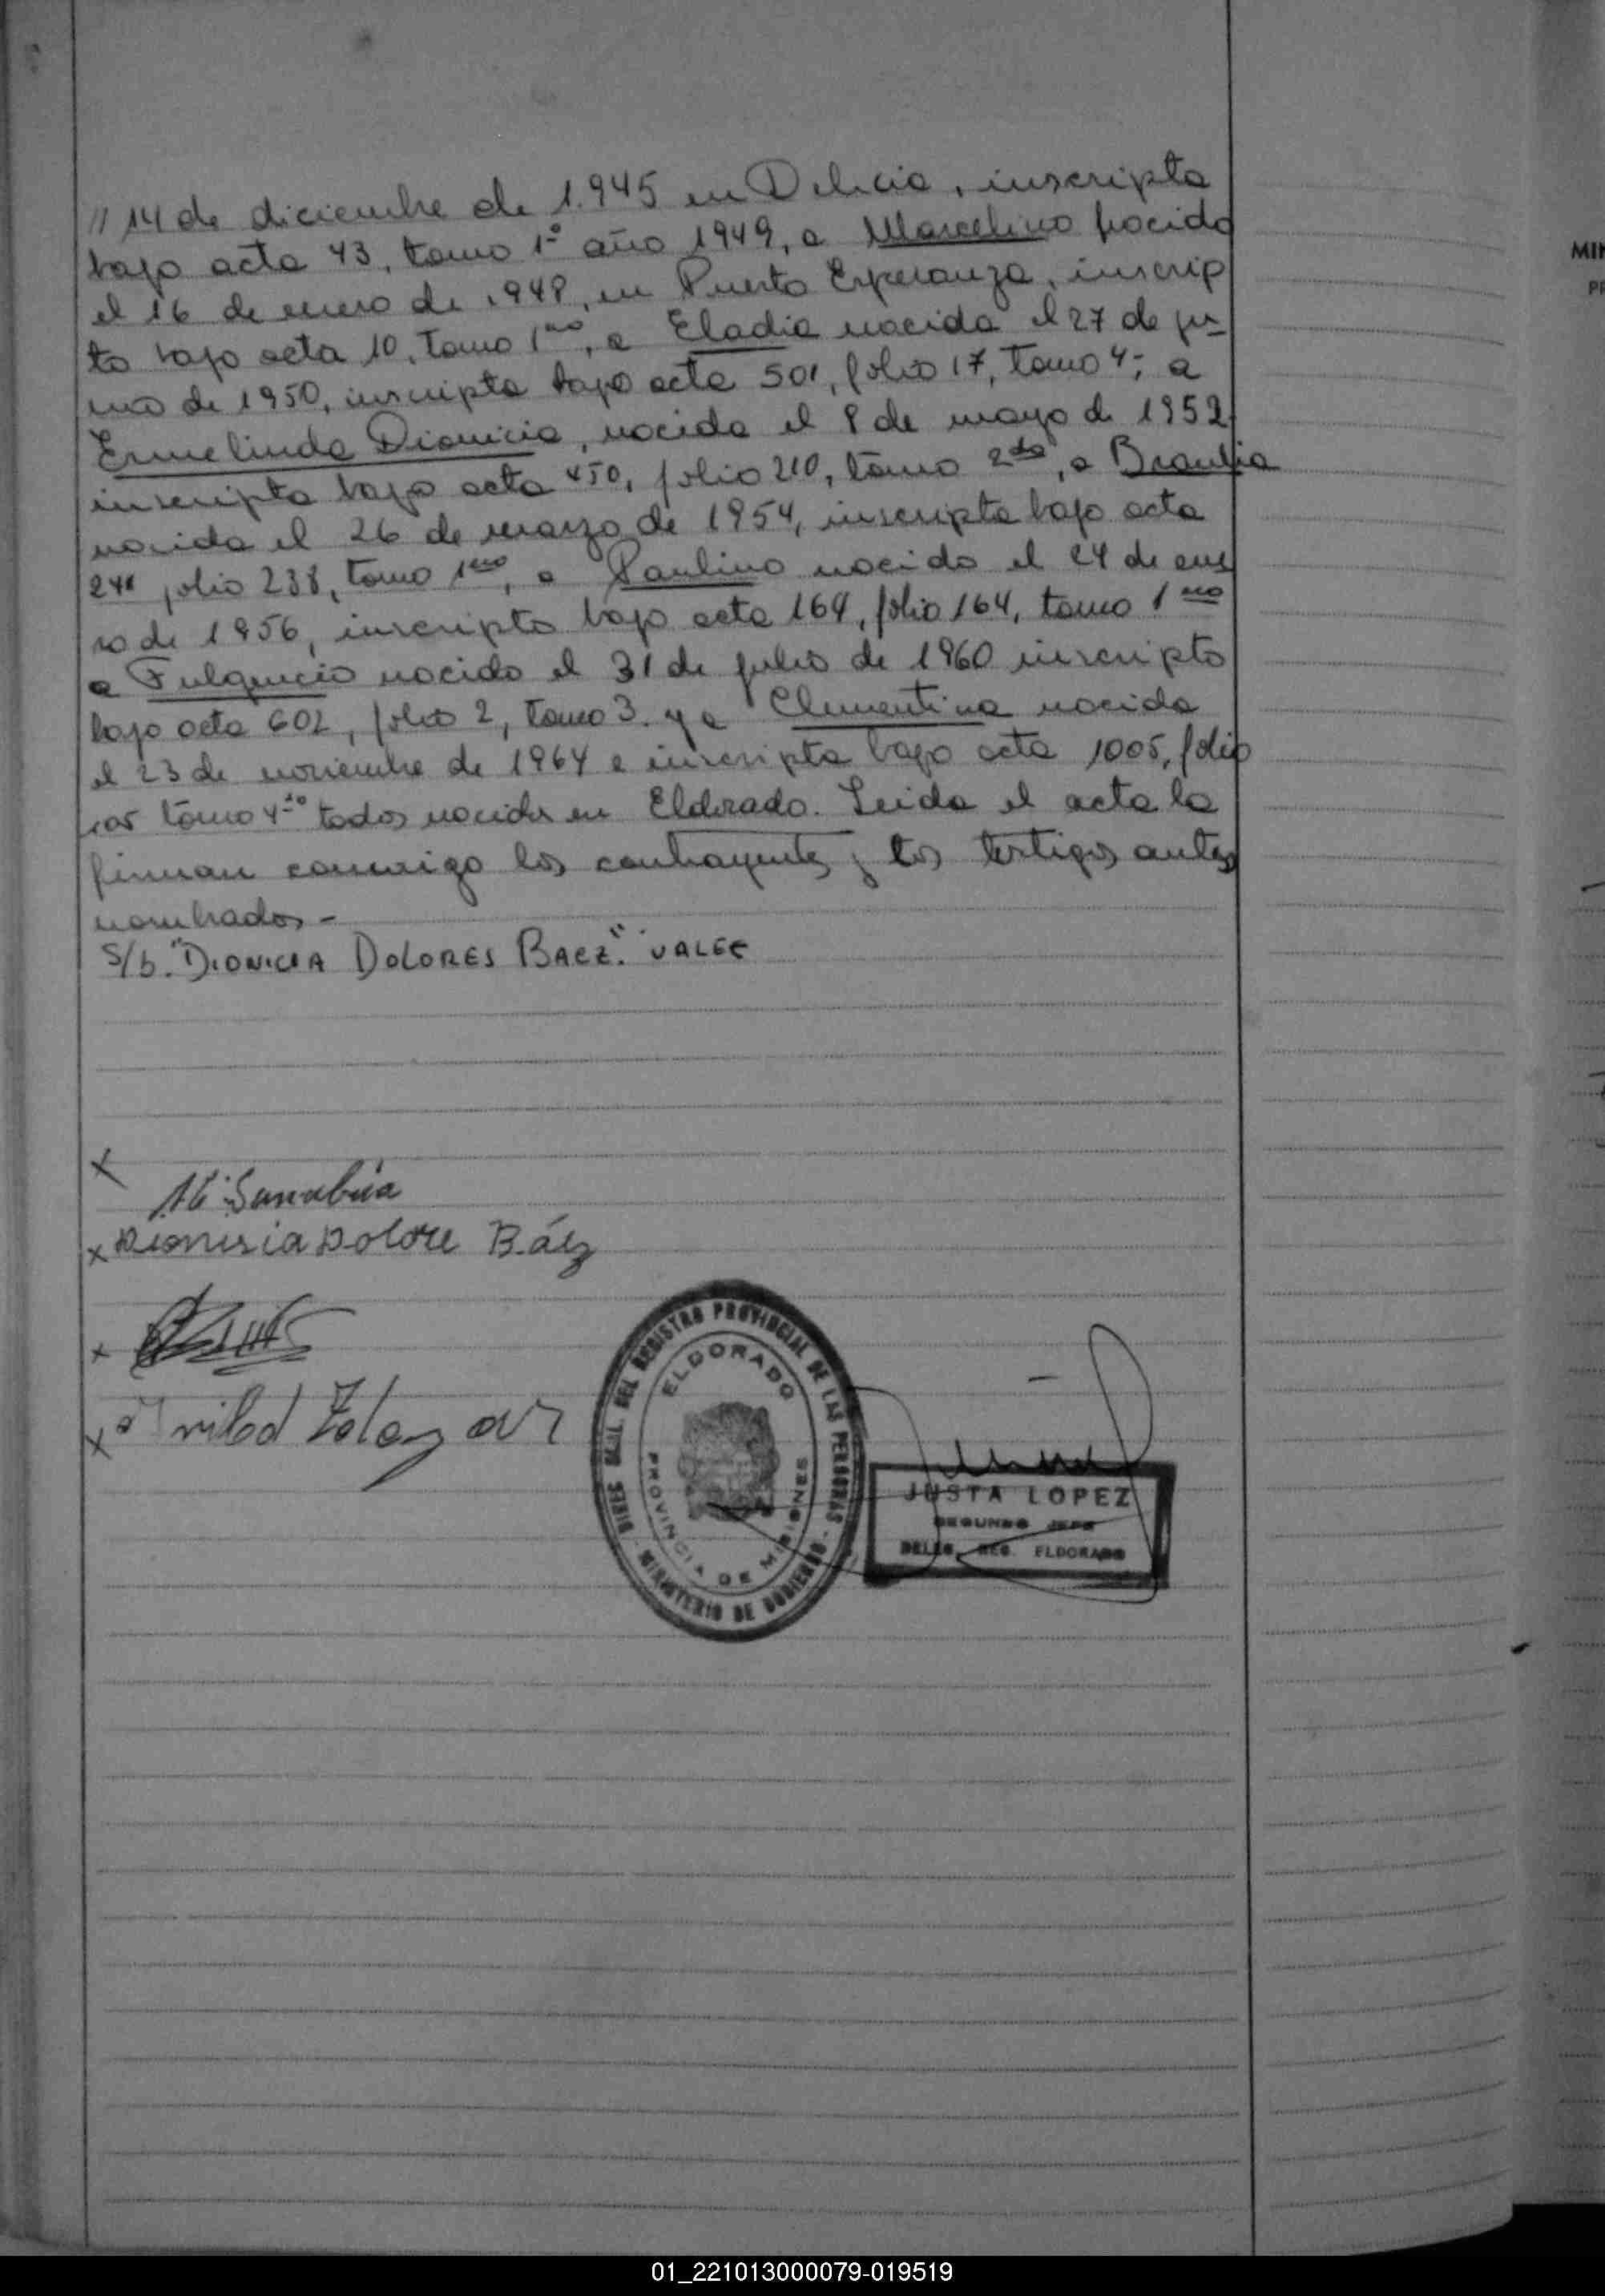 // 14 de diciembre de 1.945 en Delicia, inscripta
bajo acta 43, tomo 1º año 1949, a Marcelino nacido
el 16 de enero de 1948, en Puerto Esperanza, inscrip
to bajo acta 10, tomo 1ero, a Eladia nacida el 27 de ju-
nio de 1950, inscripta bajo acta 501, folio 17, tomo 4; a
Ermelinda Dionicia, nacida el 8 de mayo de 1952
inscripta bajo acta 450, folio 210, tomo 2do, a Braulia
nacida el 26 de marzo de 1954, inscripta bajo acta
folio 238, tomo 1ero, a Paulino nacido el 24 de ene
ro de 1956, inscripto bajo acta 164, folio 164, tomo 1ero
a Fulgencio nacido el 31 de julio de 1960 inscripto
bajo acta 602, folio 2, tomo 3. y a Clementina nacida
el 23 de noviembre de 1964 e inscripta bajo acta 1005, folio
tomo 4to todos nacidos en Eldorado. Leida el acta la
firman conmigo los contrayentes y los testigos antes
nombrados -
S/b. "DIONICIA DOLORES BAEZ". VALEE
x
Sanabria
x Dionisia Dolore Báez
x
x
DIREC. GRAL. DEL REGISTRO PROVINCIAL DE LAS PERSONAS - MINISTERIO DE GOBIERNO
ELDORADO
PROVINCIA DE MISIONES
JUSTA LOPEZ
SEGUNDO JEFE
DELEG. REG. ELDORADO
MIN
01_221013000079-019519